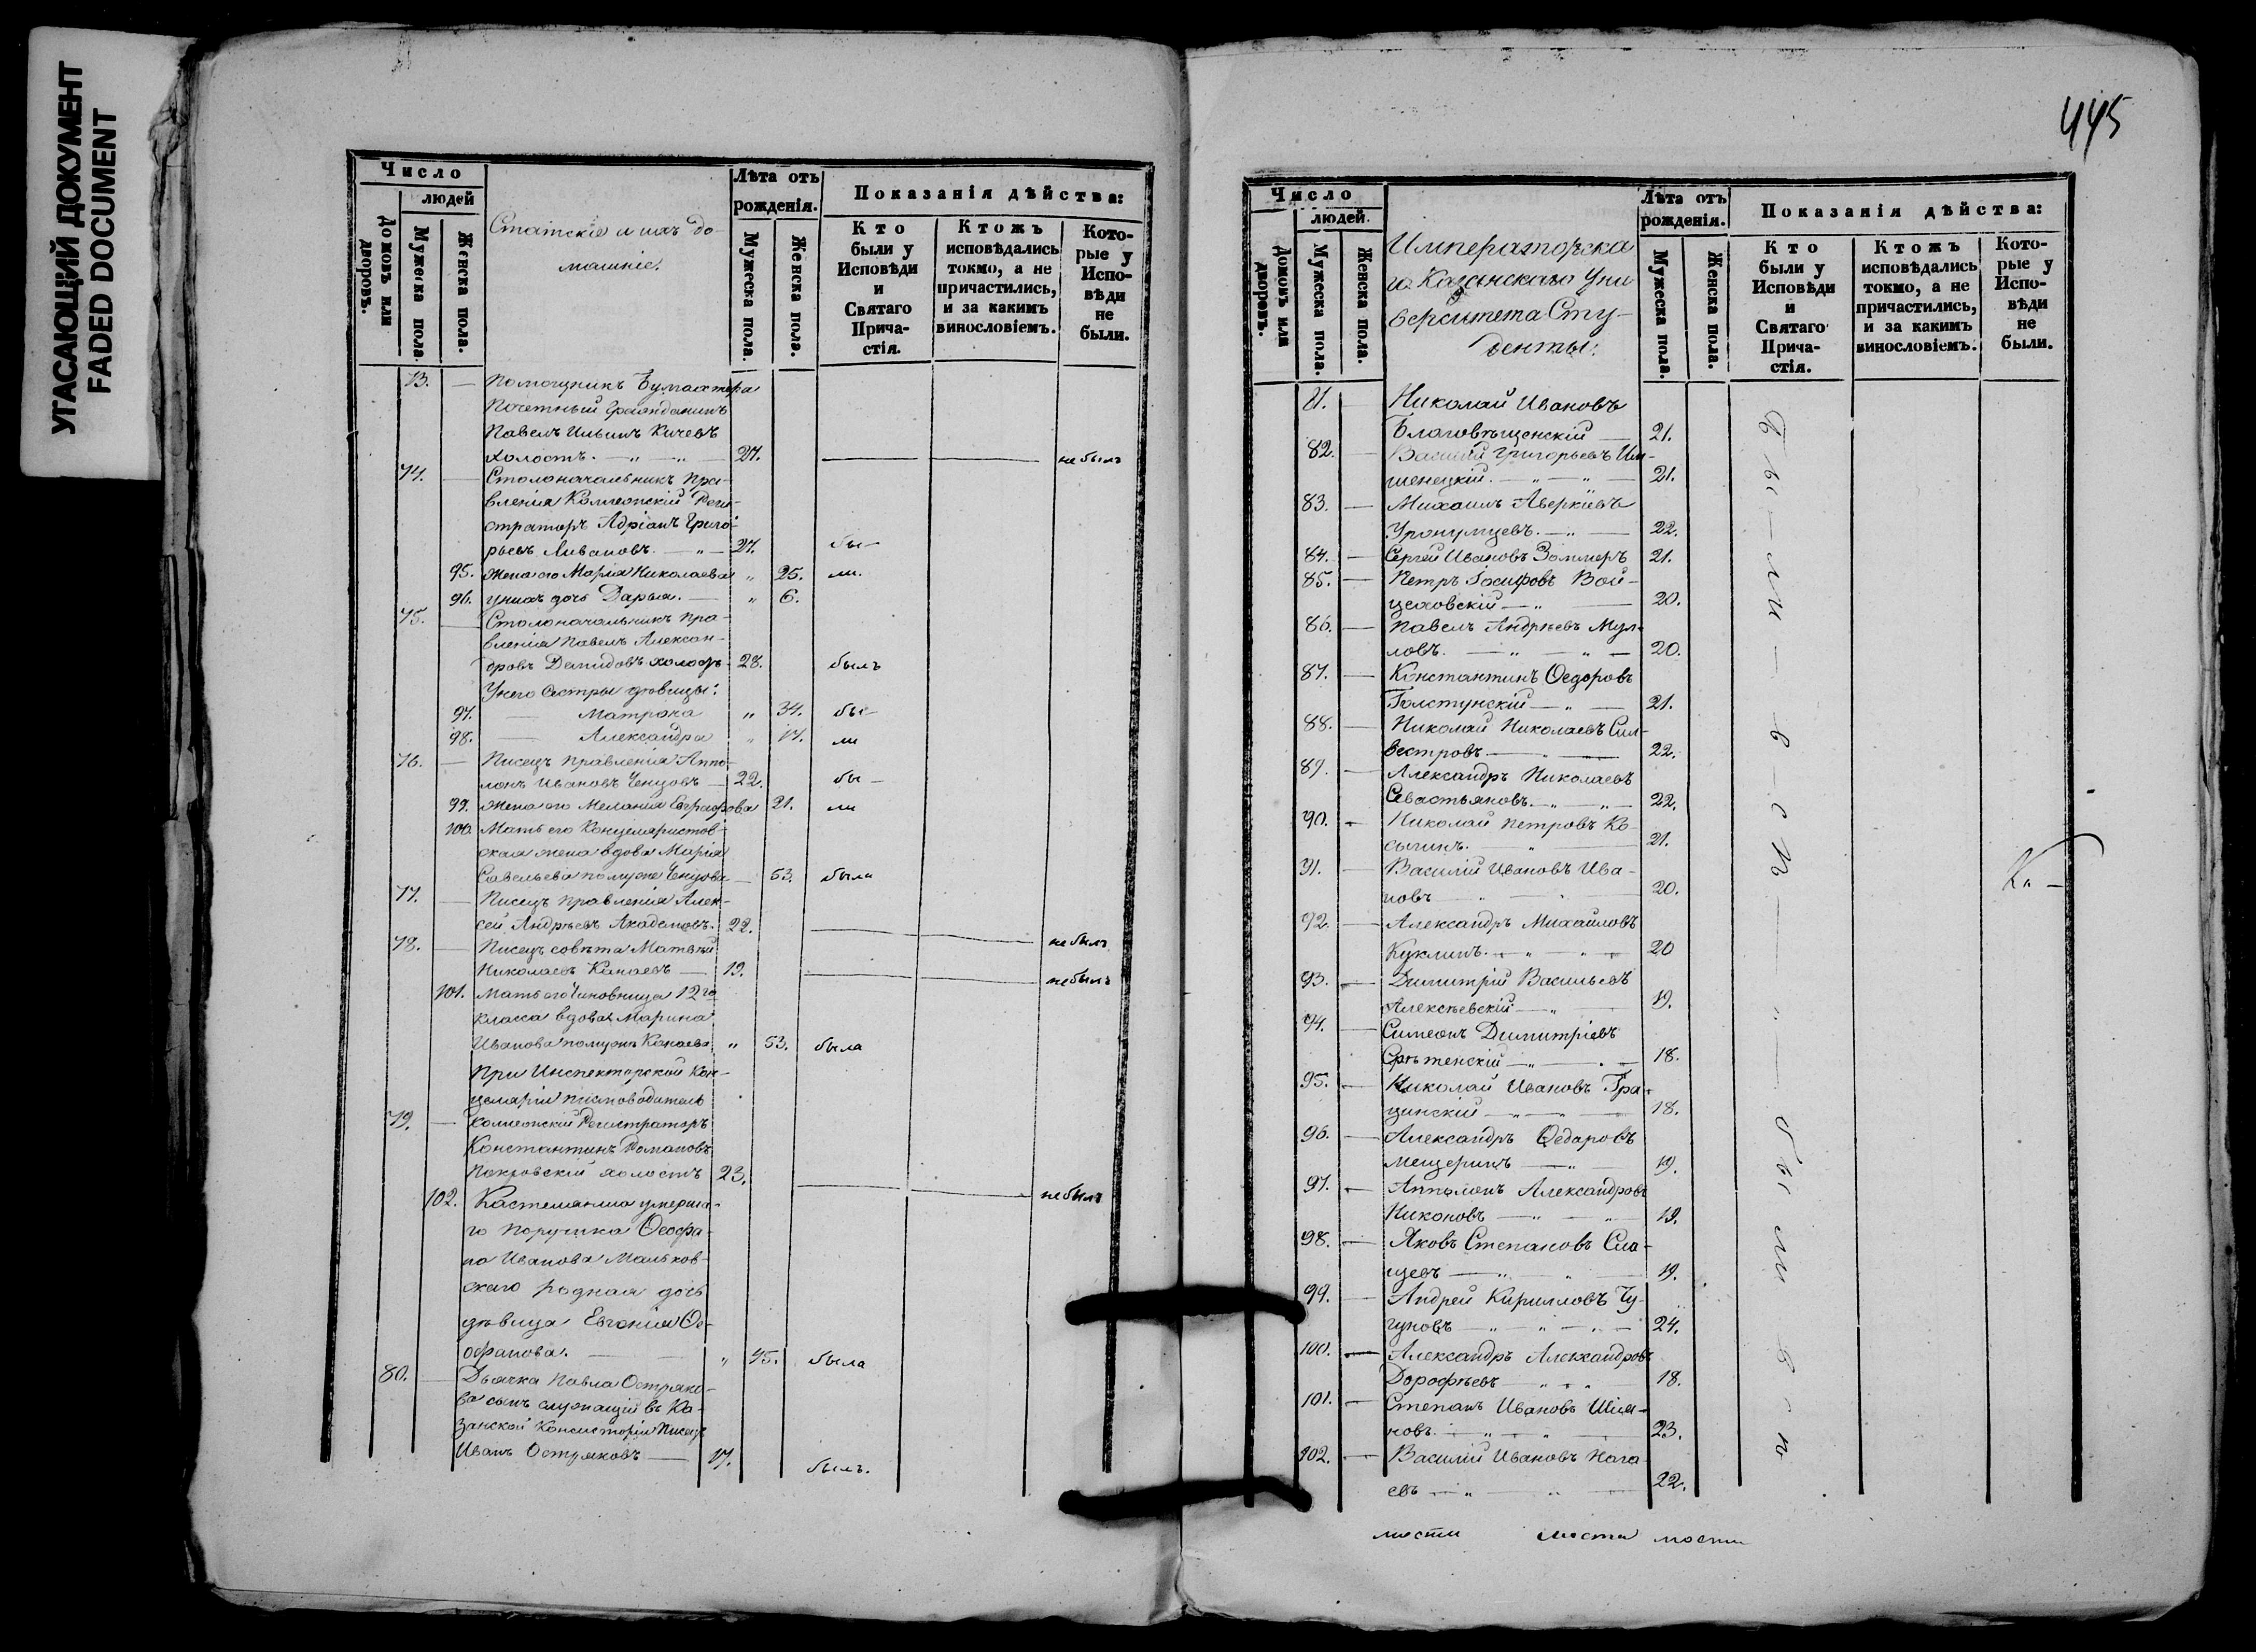 УГАСАЮЩИЙ ДОКУМЕНТ
FADED DOCUMENT
Число
людей
Домовъ или дворовъ.
Мужеска пола.
Женска пола.
Статскіе и ихъ до-
машніе.
Лѣта отъ
рожденія.
Мужеска пола.
Женска пола.
Показанія дѣйства:
Кто
были у
Исповѣди
и
Святаго
Прича-
стія.
Ктожъ
исповѣдались
токмо, а не
причастились,
и за какимъ
винословіемъ.
Кото-
рые у
Испо-
вѣди
не
были.
73. — Помощникъ Бухгалтера
Почетный Гражданинъ
Павелъ Ильинъ
холостъ. — " — " — 27. не былъ
74. — Столоначальникъ Пра-
вленія Коллежскій Реги-
страторъ Адріанъ Григо-
рьевъ Ливановъ. — " — 27. бы-
95. Жена его Марія Николаева " 25. ли.
96. у нихъ дочь Дарья. — " 6.
75. — Столоначальникъ пра-
вленія Павелъ Алексан-
дровъ Демидовъ холостъ 28. былъ
У него сестры дѣвицы:
97. — Матрона " 34. бы-
98. — Александра " 17. ли
76. — Писецъ правленія Аппо-
лонъ Ивановъ Ченцовъ — 22. бы-
99. Жена его Меланія Евграфова 21. ли
100. Мать его Канцеляристов-
ская жена вдова Марія
Савельева по мужѣ Ченцова — 53. была
77. — Писецъ правленія Алек-
сей Андрѣевъ Академовъ. 22. не былъ
78. — Писецъ совѣта Матвѣй
Николаевъ Канаевъ — 19. не былъ
101. Мать его Чиновница 12го
класса вдова Марина
Иванова по мужѣ Канаева " 53. была
При Инспекторской Кан-
целяріи письмоводитель
79. — Коллежскій Регистраторъ
Константинъ Романовъ
Покровскій холостъ 23. не былъ
102. Кастелянша умерша-
го Поручика Ѳеофа-
на Иванова Мальков-
скаго родная дочь
дѣвица Евгенія Ѳе-
офанова. — " 45. была
80. — Дьячка Павла Остряко-
ва сынъ служащій въ Ка-
занской Консисторіи Писецъ
Иванъ Остряковъ — 17. былъ.
445
Число
людей.
Домовъ или дворовъ.
Мужеска пола.
Женска пола.
Императорска
го Казанскаго Уни
верситета Сту-
денты:
Лѣта отъ
рожденія.
Мужеска пола.
Женска пола.
Показанія дѣйства:
Кто
были у
Исповѣди
и
Святаго
Прича-
стія.
Ктожъ
исповѣдались
токмо, а не
причастились,
и за какимъ
винословіемъ.
Кото-
рые у
Испо-
вѣди
не
были.
81. — Николай Ивановъ
Благовѣщенскій — 21.
82. — Василій Григорьевъ
21.
83. — Михаилъ Аверкіевъ
— " — 22.
84. — Сергѣй Ивановъ Зоммеръ 21.
85. — Петръ Іосифовъ Вой-
цеховскій — " — 20.
86. — Павелъ Андрѣевъ Мул-
ловъ. — " — " — 20.
87. — Константинъ Ѳедоровъ
Толстунскій — " — 21.
88. — Николай Николаевъ Сил-
вестровъ — 22.
89. — Александръ Николаевъ
Севастьяновъ. — " — " — 22.
90. — Николай Петровъ Ко-
сыгинъ. " 21.
91. — Василій Ивановъ Ива-
новъ — 20.
92. — Александръ Михаиловъ
Куклинъ. — " — " — 20
93. — Димитрій Васильевъ
Алексѣевскій — " 19.
94. — Симеонъ Димитріевъ
Срѣтенскій — " — 18.
95. — Николай Ивановъ Гра-
цинскій — " — " — 18.
96. — Александръ Ѳедоровъ
Мещеринъ — " — 19.
97. — Апполонъ Александровъ
Никоновъ — " — " 19.
98. — Яковъ Степановъ
— " — " — 19.
99. — Андрей Кирилловъ Чу-
гуновъ — " — " — " — 24.
100. — Александръ Александровъ
Дорофѣевъ — " — " 18.
101. — Степанъ Ивановъ
новъ. — " — " — 23.
102. — Василій Ивановъ Нага-
евъ — " — " — 22.
бы-ли-всѣ
были всѣ
мости мости мости